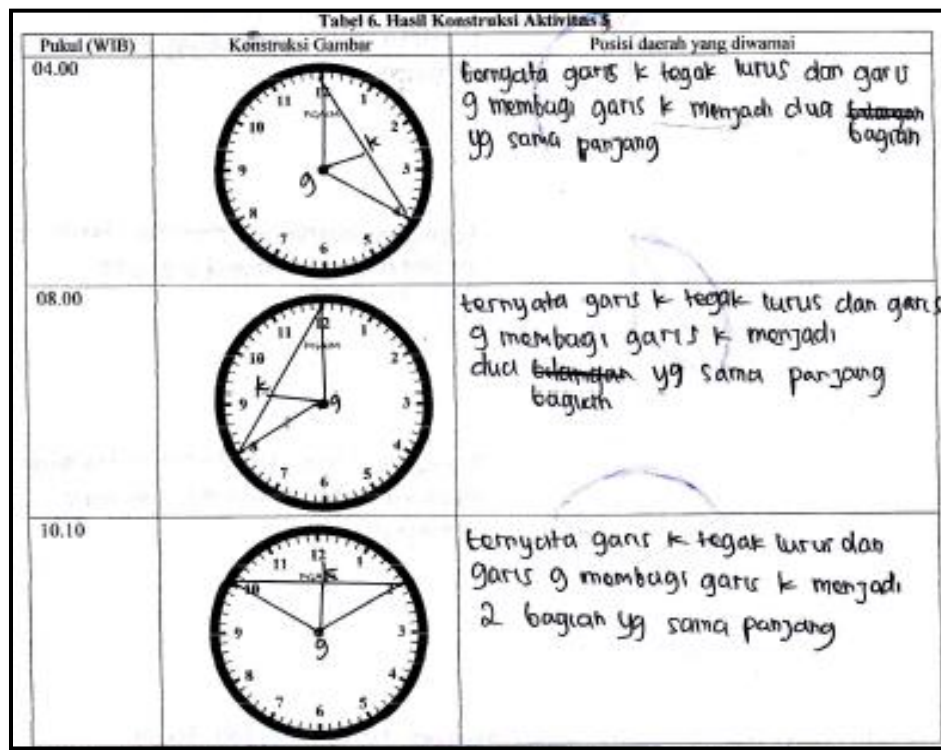 Tabel 6. Hasil Konstruksi Aktivitas 5
Pukul (WIB)
Konstruksi Gambar
Posisi daerah yang diwarnai
04.00
12
1
2
3
4
5
6
7
8
9
10
11
k
g
ternyata garis k tegak lurus dan garis
g membagi garis k menjadi dua bilangan
bagian
yg sama panjang
08.00
12
1
2
3
4
5
6
7
8
9
10
11
k
g
ternyata garis k tegak lurus dan garis
g membagi garis k menjadi
dua bilangan yg sama panjang
bagian
10.10
12
1
2
3
4
5
6
7
8
9
10
11
k
g
ternyata garis k tegak lurus dan
garis g membagi garis k menjadi
2 bagian yg sama panjang